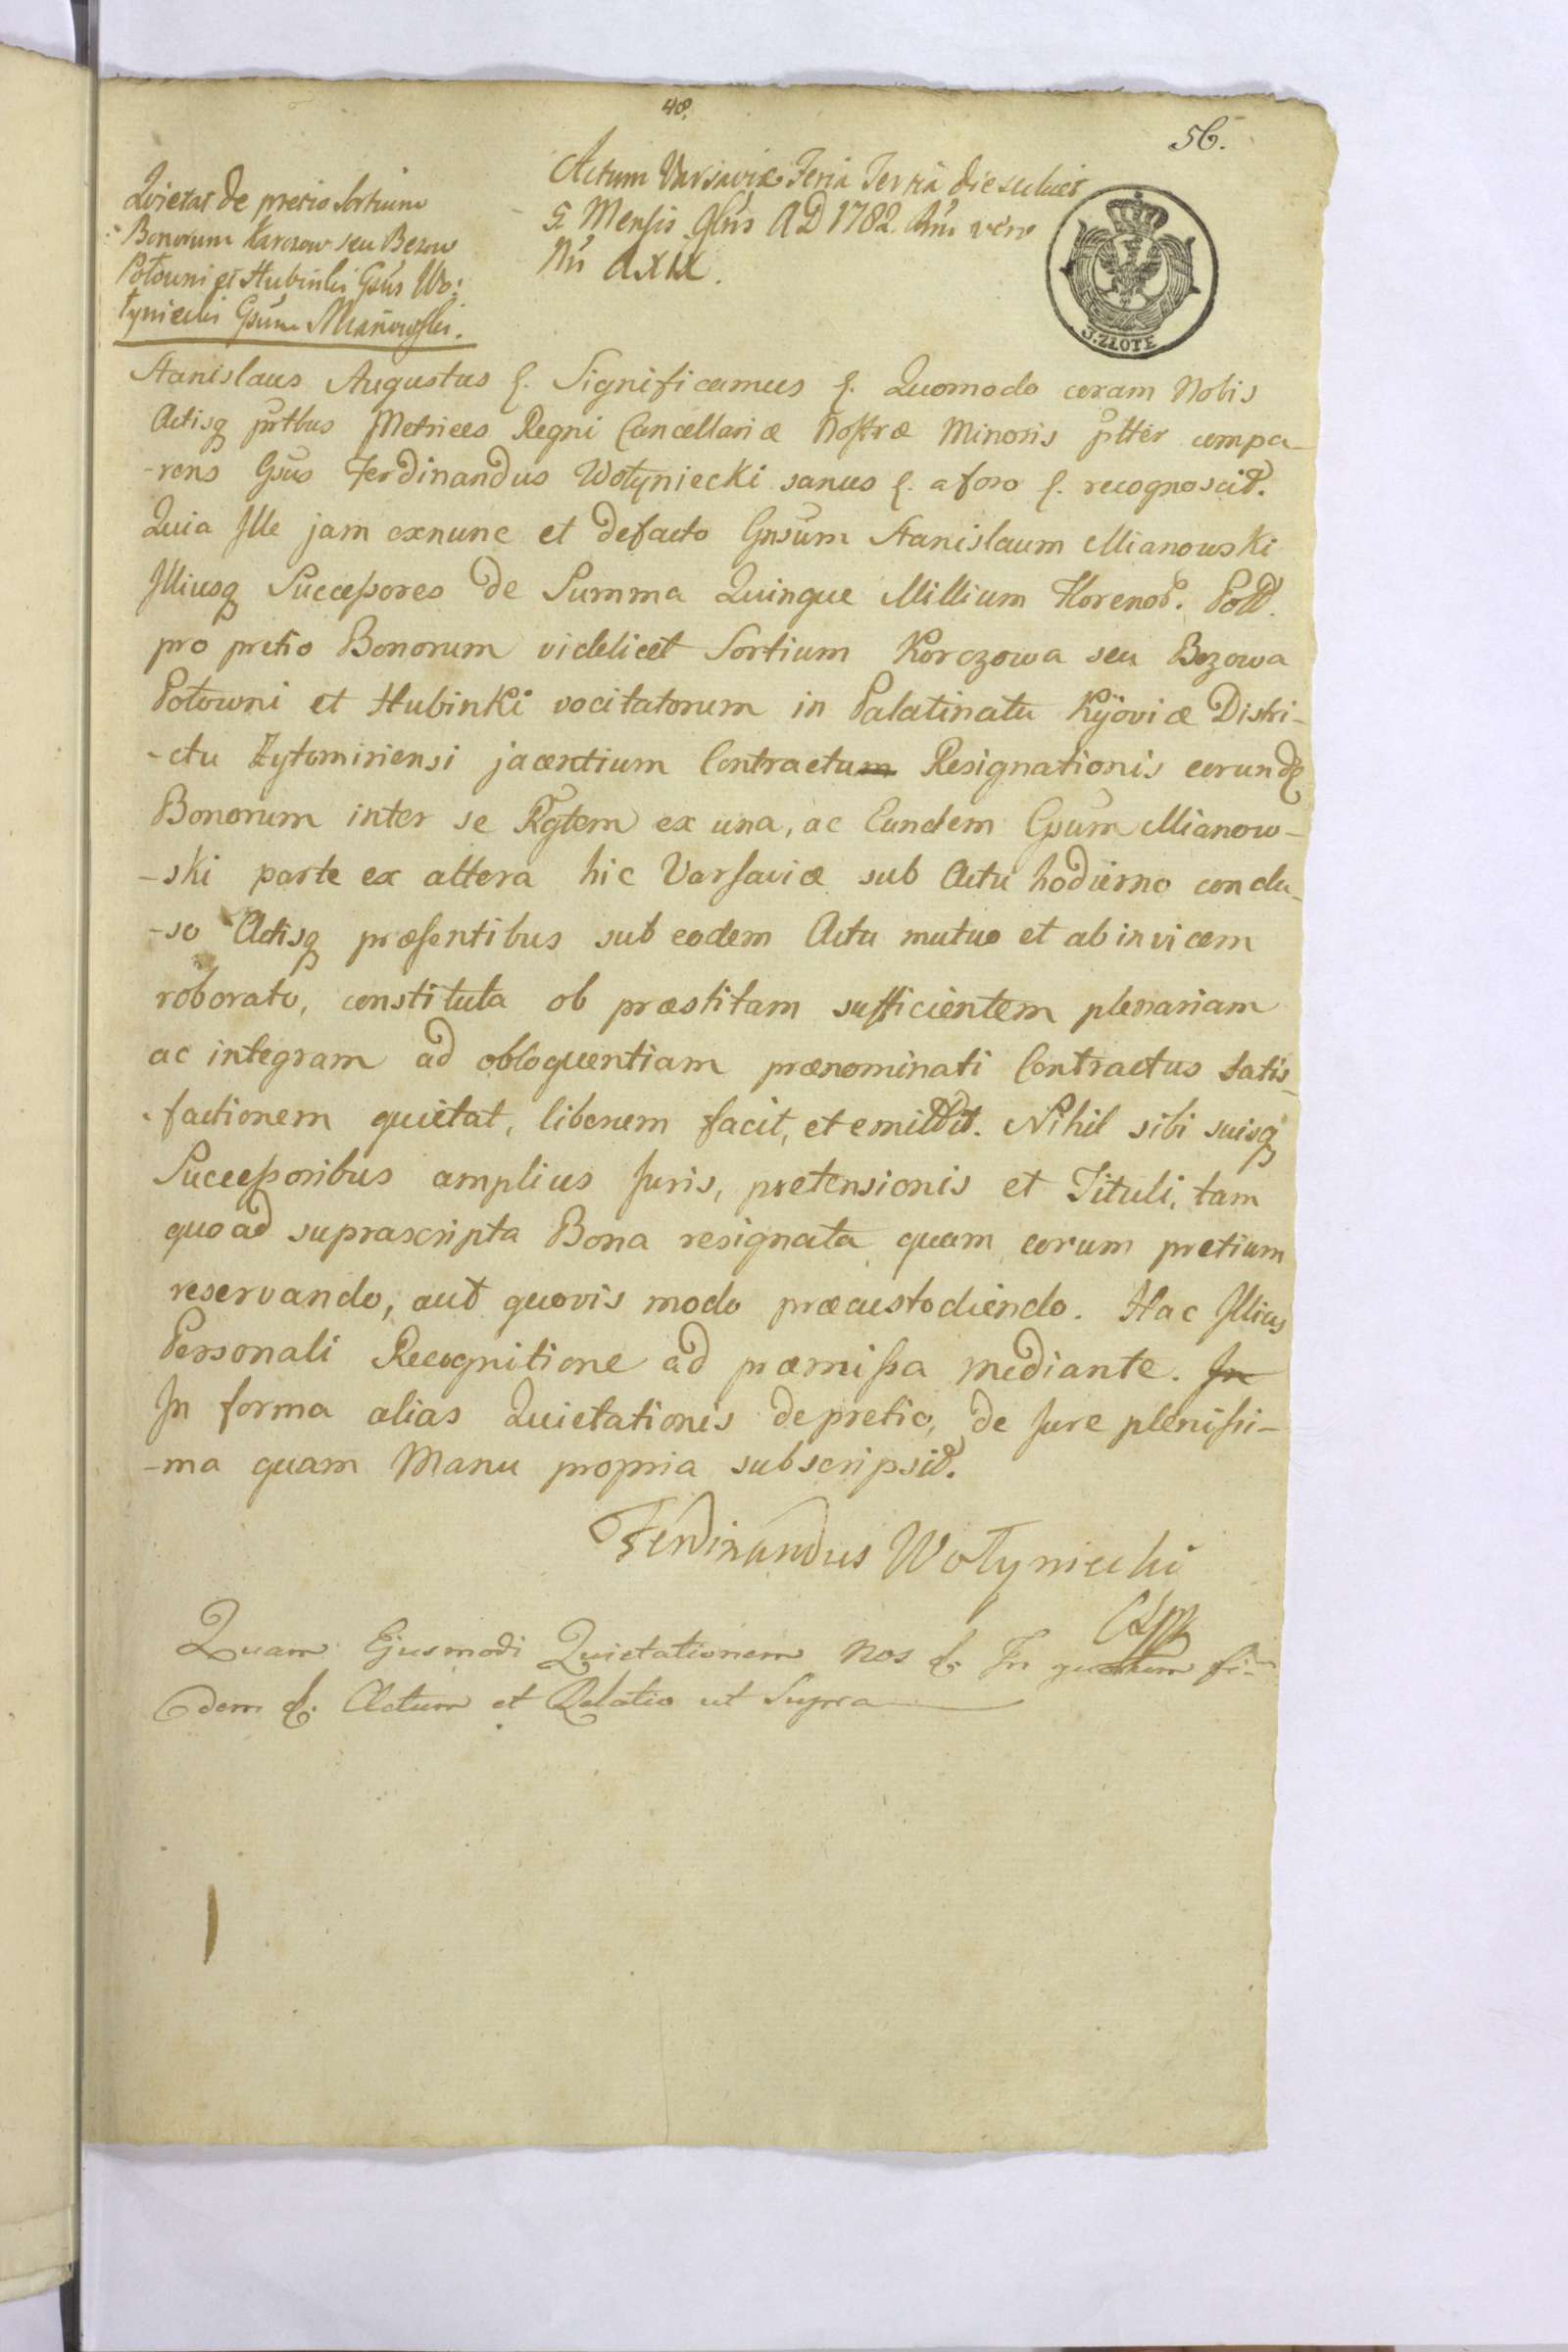 48.
56.
Quietat de pretio Sortium
Bonorum Karczow seu Bezow
Połowni et Hubinki Gsus Wo:
łyniecki Gsum Mianowski.
Actum Varsaviæ Feria Tertia die scilicet
5 Mensis 9bris AD 1782. Ani vero
Ni AXIX.
3.ZŁOTE
Stanislaus Augustus &. Significamus &. Quomodo coram Nobis
Actisq prtbus Metrices Regni Cancellariæ Nostræ Minoris pltter compa-
-rens Gsus Ferdinandus Wołyniecki sanus &. a foro &. recognoscit.
Quia Ille jam exnunc et defacto Gnsum Stanislaum Mianowski
Illiusq Successores de Summa Quinque Millium Florenor. Poll.
pro pretio Bonorum videlicet Sortium Korczowa seu Bezowa
Połowni et Hubinki vocitatorum in Palatinatu Kÿoviæ Distri-
-ctu Zytomiriensi jacentium Contractum Resignationis eorundq
Bonorum inter se Rgtem ex una, ac Eundem Gsum Mianow-
-ski parte ex altera hic Varsaviæ sub Actu hodierno conclu-
-so Actisq præsentibus sub eodem Actu mutuo et ab invicem
roborato, constituta ob præstitam sufficientem plenariam
ac integram ad obloquentiam prænominati Contractus satis-
-factionem quietat, liberum facit, et emittit. Nihil sibi suisq
Successoribus amplius Juris, pretensionis et Tituli, tam
quoad suprascripta Bona resignata quam eorum pretium
reservando, aut quovis modo præcustodiendo. Hac Illius
Personali Recognitione ad præmissa mediante. In
In forma alias Quietationis de pretio, de Jure plenissi-
-ma quam Manu propria subscripsit.
Ferdinandus Wołyniecki
Quam Ejusmodi Quietationem Nos &. In quorum fi-
dem &. Actum et Relatio ut Supra